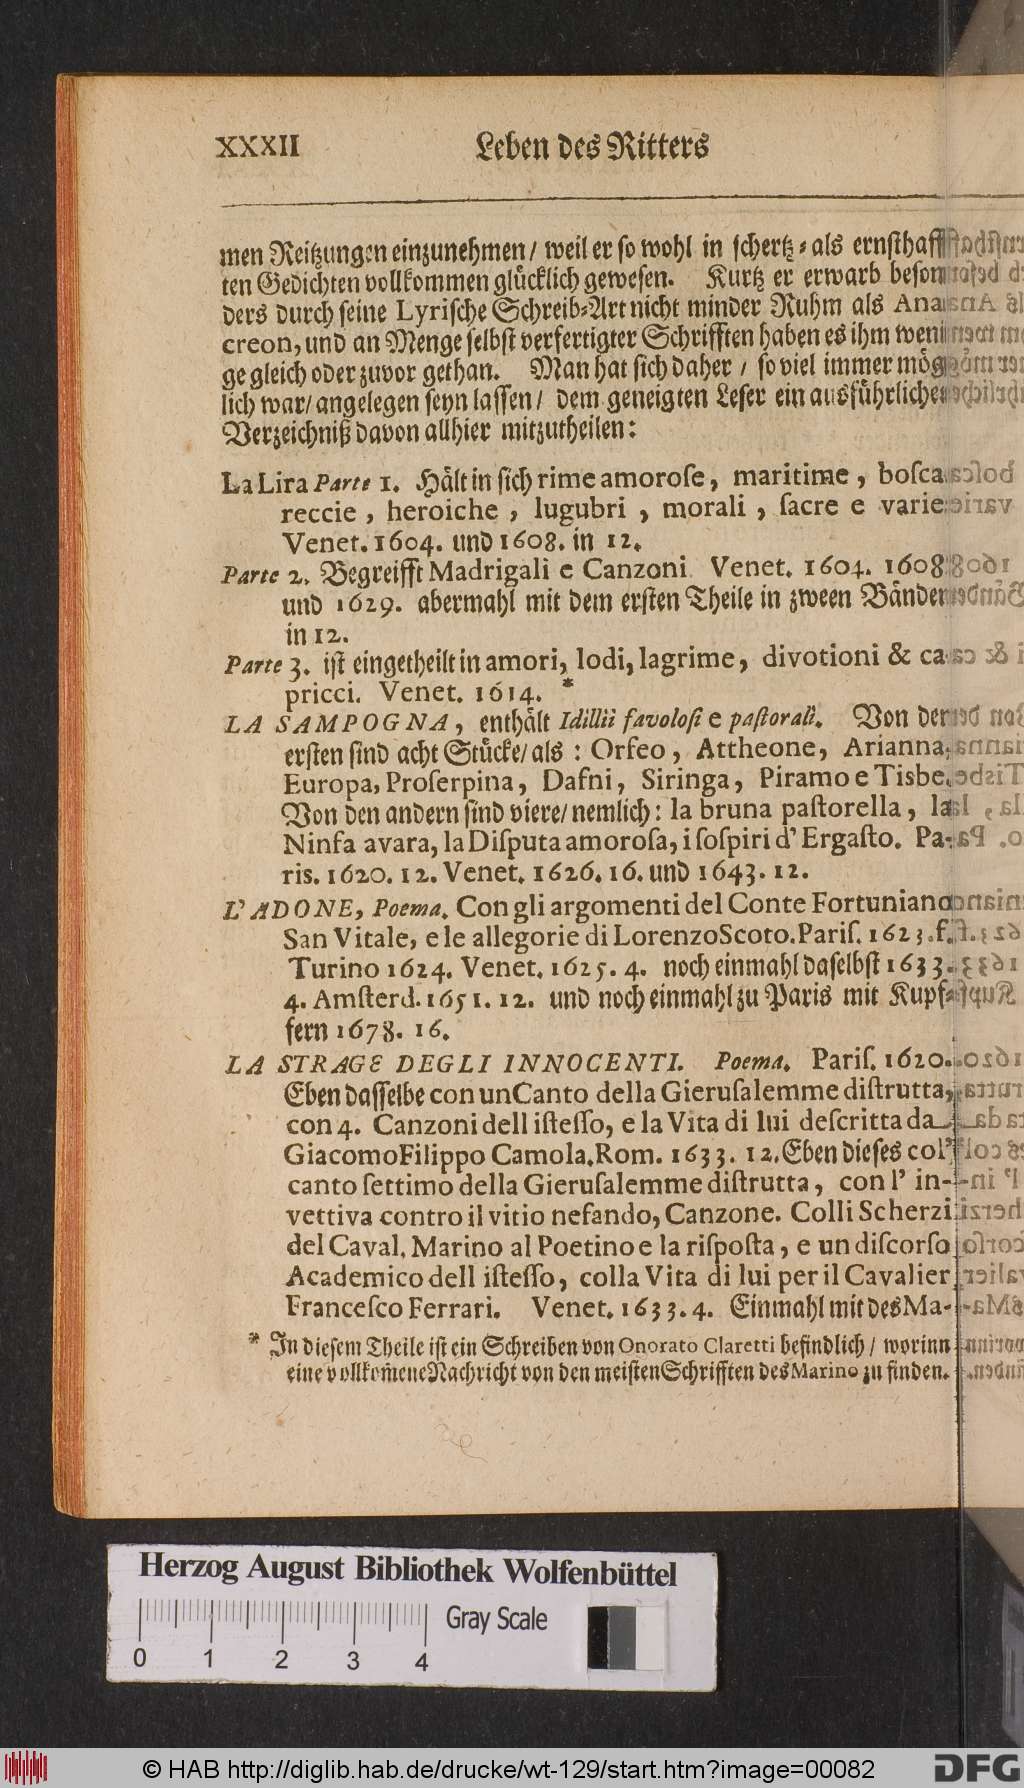 XXXII Leben des Ritters
men Reitzungen einzunehmen / weil er so wohl in schertz⸗als ernsthaff
ten Gedichten vollkommen glücklich gewesen. Kurtz er erwarb beson
ders durch seine Lyrische Schreib⸗Art nicht minder Ruhm als Ana
creon, und an Menge selbst verfertigter Schrifften haben es ihm weni
ge gleich oder zuvor gethan. Man hat sich daher / so viel immer mög
lich war / angelegen seyn lassen / dem geneigten Leser ein ausführliches
Verzeichniß davon allhier mitzutheilen:
La Lira Parte 1. Hält in sich rime amorose, maritime, bosca
reccie, heroiche, lugubri, morali, sacre e varie
Venet. 1604. und 1608. in 12.
Parte 2. Begreifft Madrigali e Canzoni Venet. 1604. 1608
und 1629. abermahl mit dem ersten Theile in zween Bänden
in 12.
Parte 3. ist eingetheilt in amori, lodi, lagrime, divotioni & ca
pricci. Venet. 1614. *
LA SAMPOGNA, enthält Idillii favolosi e pastorali. Von der
ersten sind acht Stücke / als : Orfeo, Attheone, Arianna,
Europa, Proserpina, Dafni, Siringa, Piramo e Tisbe.
Von den andern sind viere / nemlich: la bruna pastorella, la
Ninfa avara, la Disputa amorosa, i sospiri d' Ergasto. Pa-
ris. 1620. 12. Venet. 1626. 16. und 1643. 12.
L' ADONE, Poema. Con gli argomenti del Conte Fortuniano
San Vitale, e le allegorie di Lorenzo Scoto. Paris. 1623. f.
Turino 1624. Venet. 1625. 4. noch einmahl daselbst 1633.
4. Amsterd. 1651. 12. und noch einmahl zu Paris mit Kupf⸗
fern 1678. 16.
LA STRAGE DEGLI INNOCENTI. Poema. Paris. 1620.
Eben dasselbe con un Canto della Gierusalemme distrutta,
con 4. Canzoni dell istesso, e la Vita di lui descritta da
Giacomo Filippo Camola. Rom. 1633. 12. Eben dieses col'
canto settimo della Gierusalemme distrutta, con l' in-
vettiva contro il vitio nefando, Canzone. Colli Scherzi
del Caval. Marino al Poetino e la risposta, e un discorso
Academico dell istesso, colla Vita di lui per il Cavalier
Francesco Ferrari. Venet. 1633. 4. Einmahl mit des Ma-
* In diesem Theile ist ein Schreiben von Onorato Claretti befindlich / worinn
eine vollkom̄ene Nachricht von den meisten Schrifften des Marino zu finden.
Herzog August Bibliothek Wolfenbüttel
0 1 2 3 4 Gray Scale
© HAB http://diglib.hab.de/drucke/wt-129/start.htm?image=00082 DFG